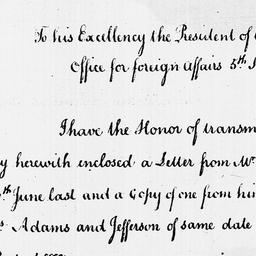 To his Excellency the President of
Office for foreign Affairs 5th
I have the Honor of transm
y herewith enclosed a Letter from Mr
th June last and a Copy of one from him
s Adams and Jefferson of same date